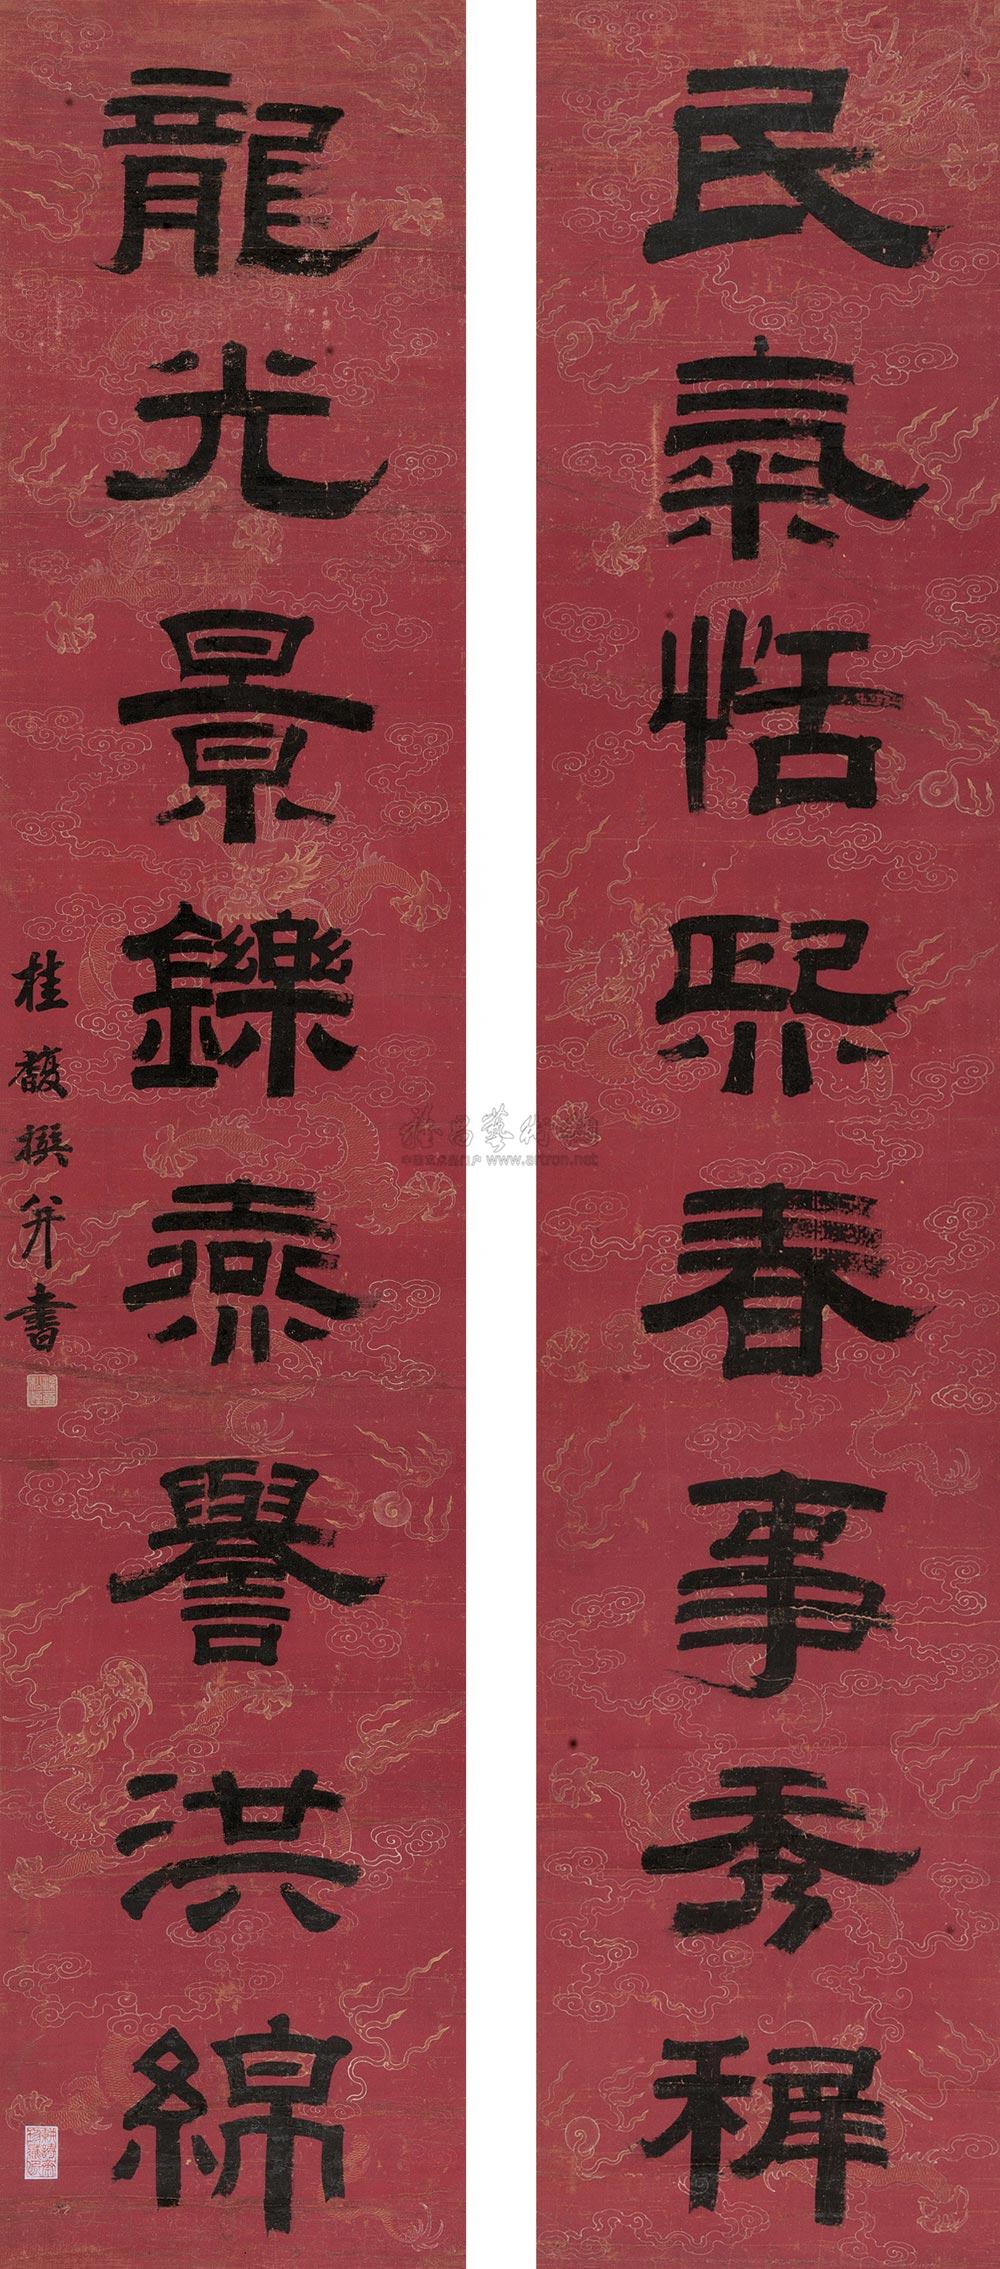 民氣恬熙春事秀穉
龍光景鑠燕譽洪綿
桂馥撰并書
www.artron.net